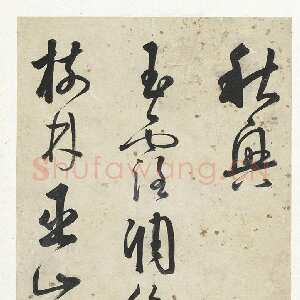 秋興
玉露凋傷
樹林巫山
Shufawang.cn